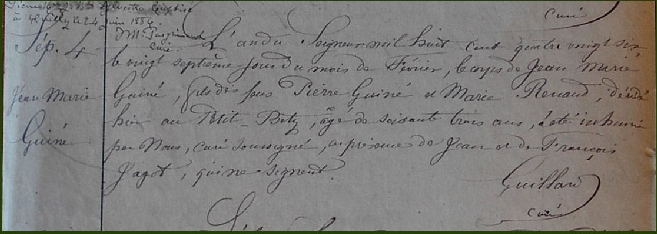 curé
Sép. 4
Jean Marie
Guiné
L'an du Seigneur mil huit cent quatre vingt six,
le vingt septième jour du mois de Février, le corps de Jean Marie
Guiné, fils des feus Pierre Guiné et Marie Renaud, décédé
hier au Petit-Bitz, âgé de soixante trois ans, a été inhumé
par Nous, curé soussigné, en présence de Jean et de François
Jagot, qui ne signent.
Guillard
curé